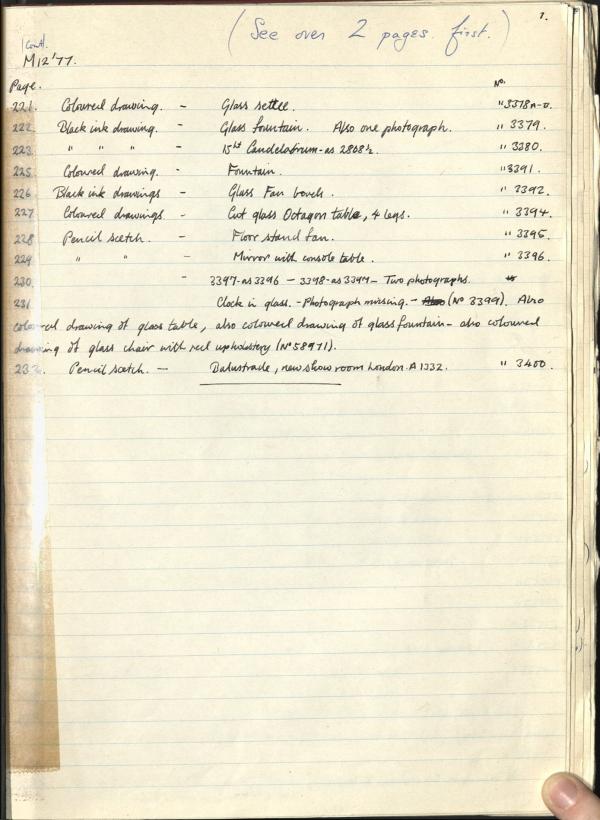 (See over 2 pages first.)
1.
(Cont.
M12'77.
Page. No.
221. Coloured drawing. - Glass settee. " 3378A-D.
222. Black ink drawing. - Glass fountain. Also one photograph. " 3379.
223. " " " - 15 Lt Candelabrum - as 2808½. " 3380.
225. Coloured drawing. - Fountain. " 3391.
226. Black ink drawings - Glass Fan bowls. " 3392.
227. Coloured drawings. - Cut glass Octagon table, 4 legs. " 3394.
228. Pencil scetch. - Floor stand fan. " 3395.
229. " " - Mirror with console table. " 3396.
230. - 3397-as 3396 - 3398-as 3397 - Two photographs.
231. Clock in glass. - Photograph missing. - (No 3399). Also
coloured drawing of glass table, also coloured drawing of glass fountain - also coloured
drawing of glass chair with red upholstery (No 58971).
232. Pencil scetch. - Balustrade, new show room London. A 1332. " 3400.